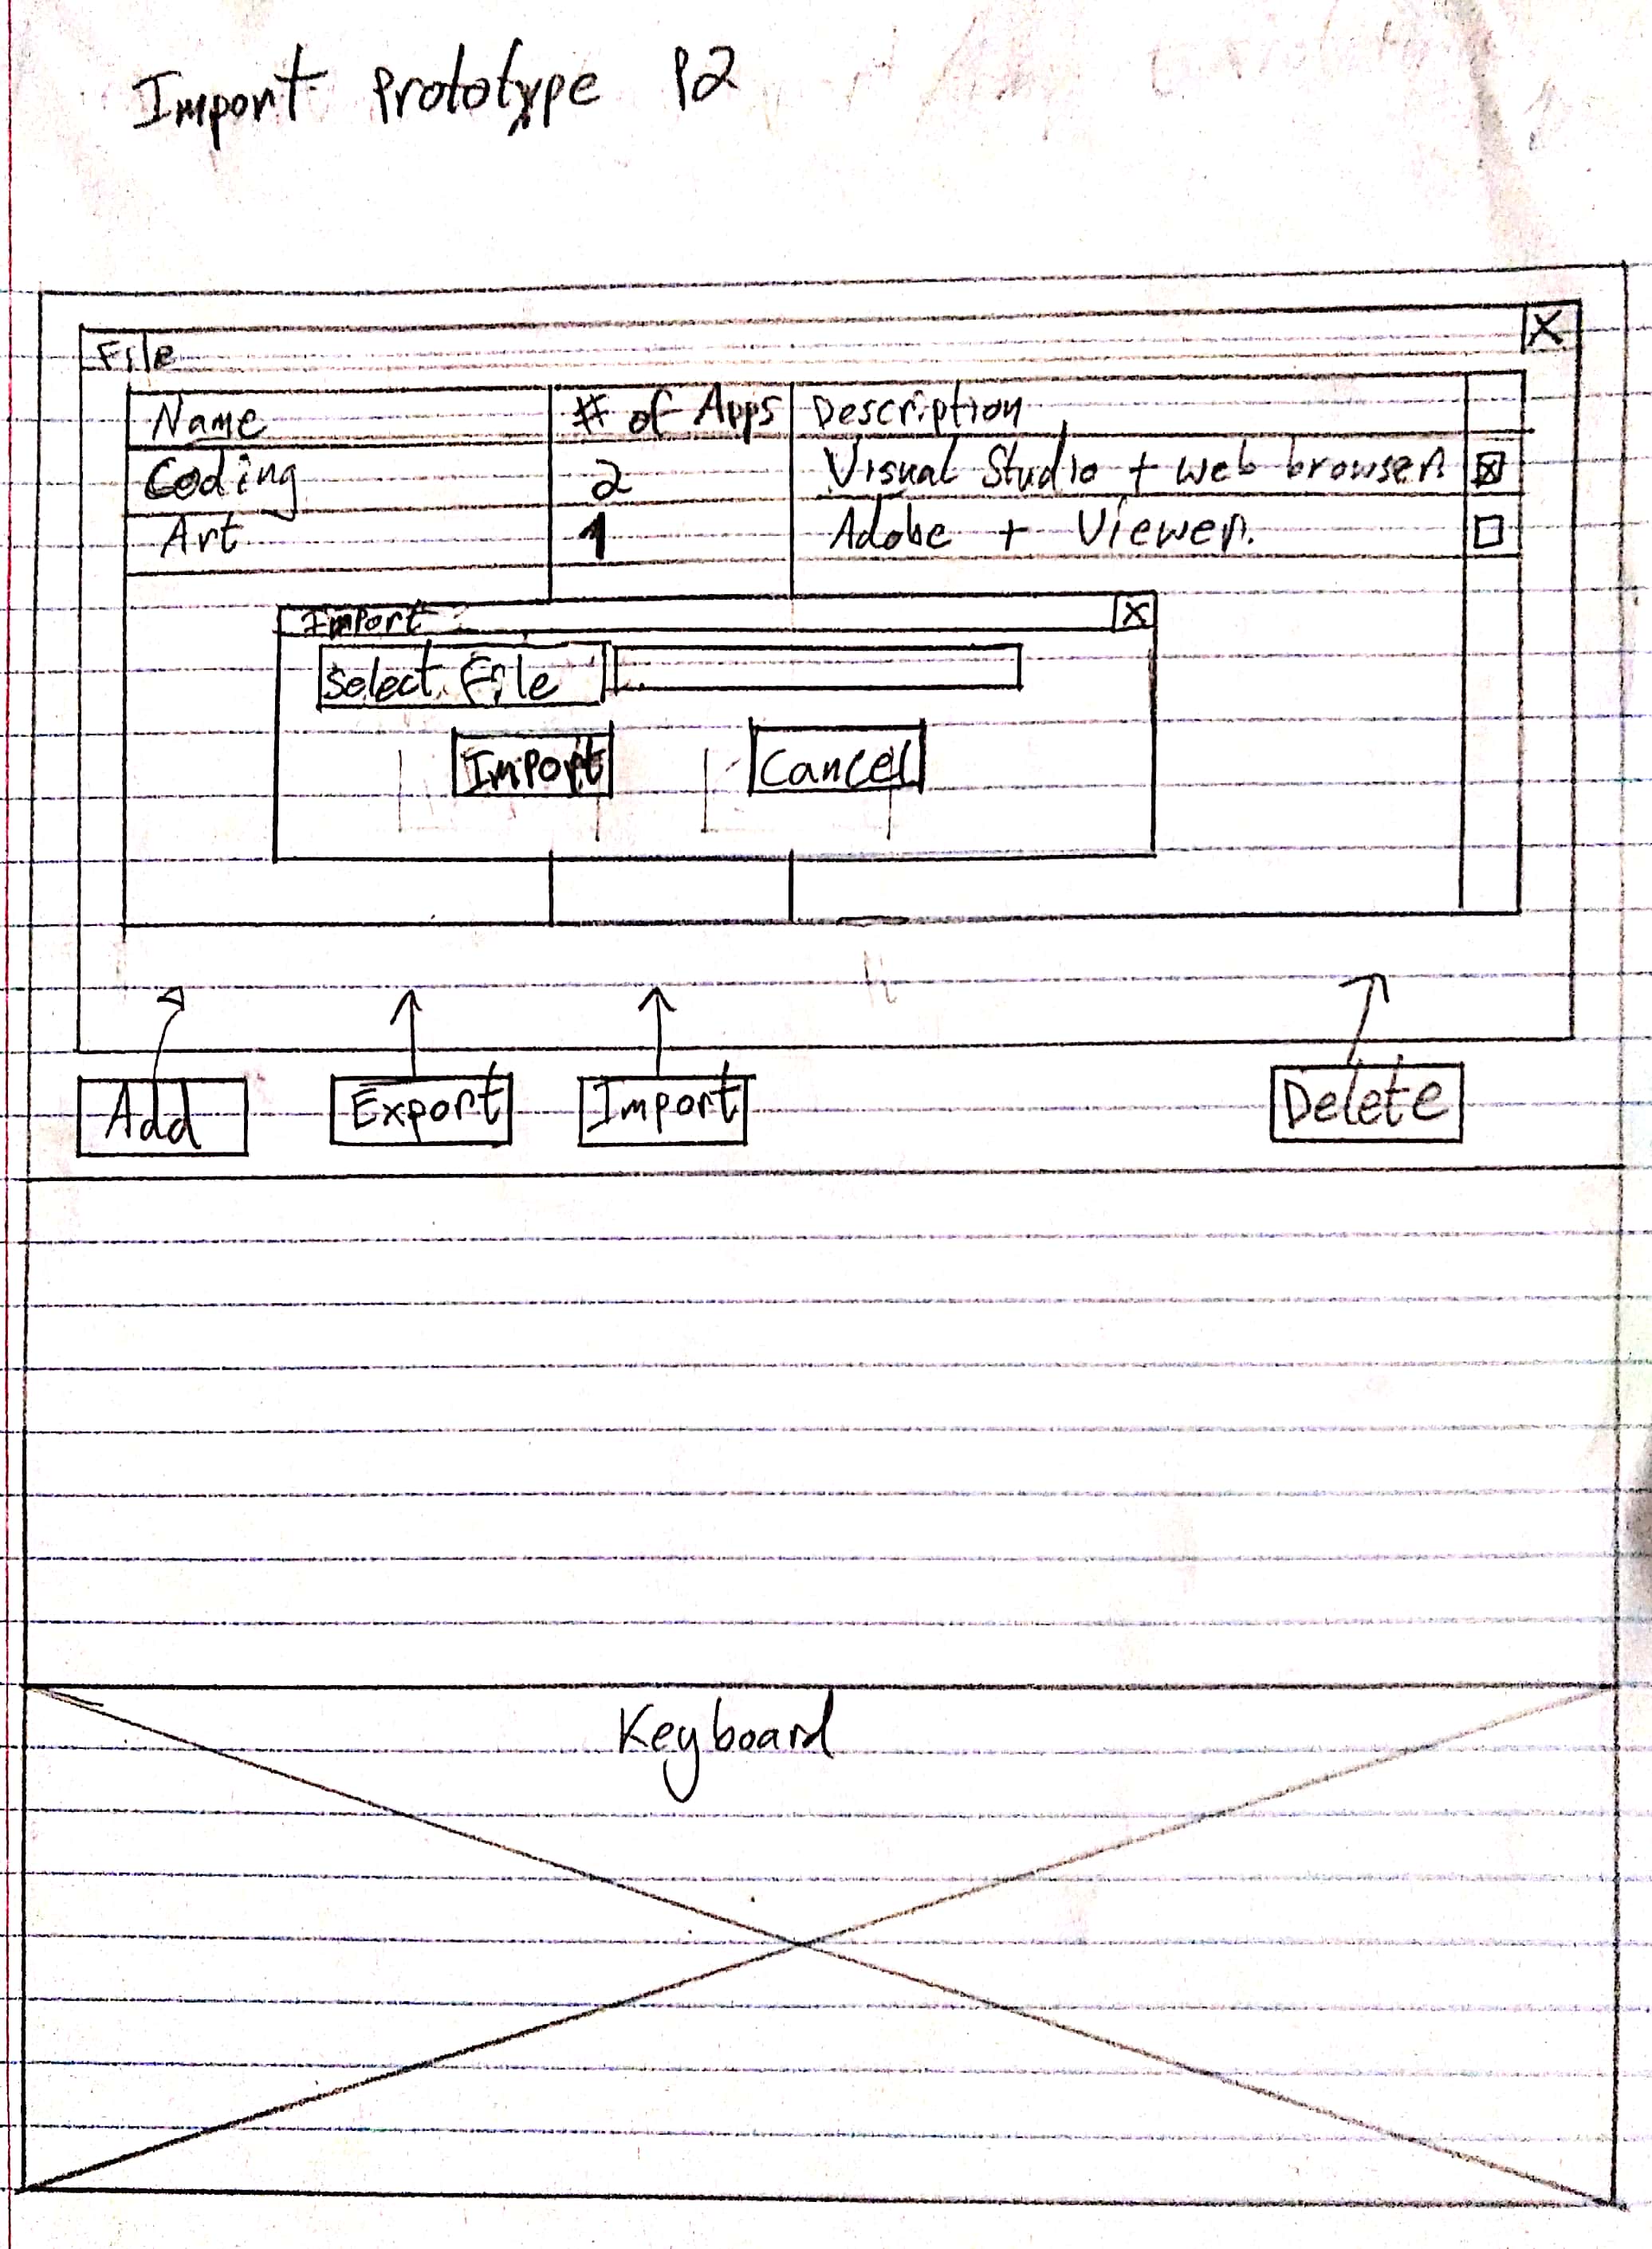 Import Prototype P2
File X
Name # of Apps Description
Coding 2 Visual Studio + web browser
Art 1 Adobe + Viewer.
Import X
Select File
Import Cancel
Add Export Import Delete
Keyboard